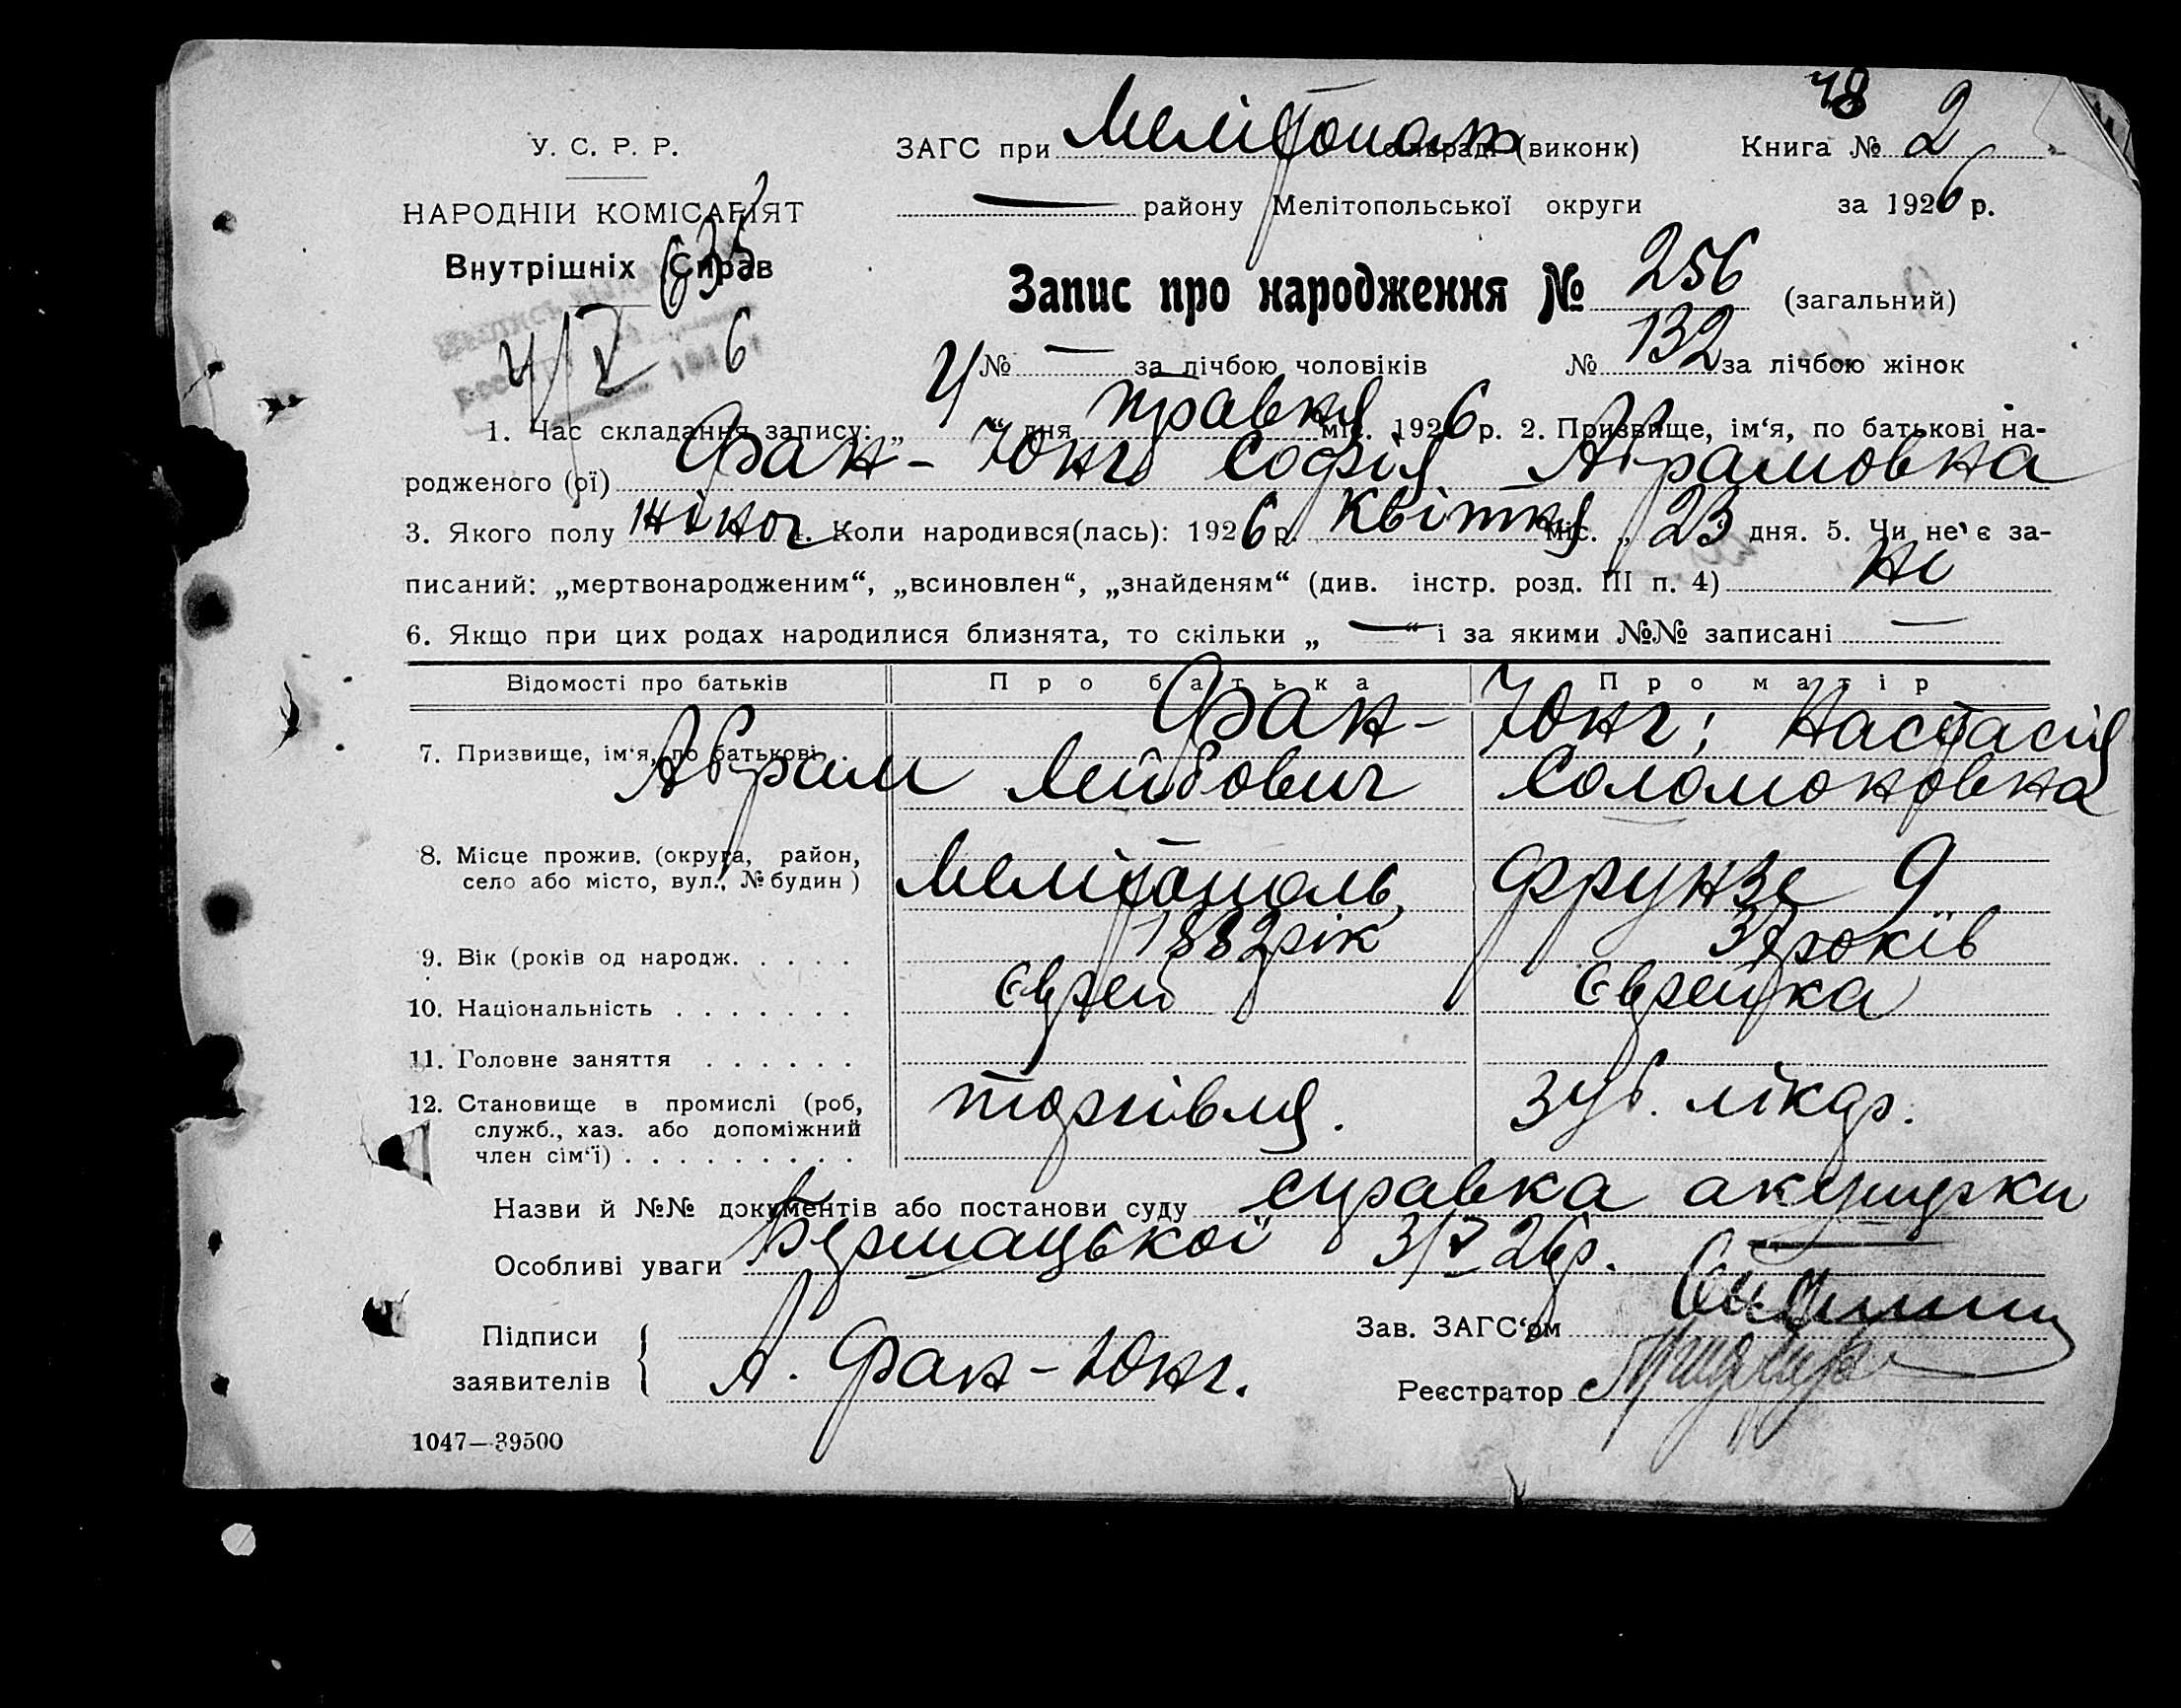 48
У. С. Р. Р.
ЗАГС при Мелітопол сільраді (виконк) Книга № 2
НАРОДНІЙ КОМІСАРІЯТ
району Мелітопольської округи за 1926 р.
Внутрішніх Справ
635
Запис про народження № 256 (загальний)
4/V 6
№ — за лічбою чоловіків № 132 за лічбою жінок
1. Час складання запису: „4“ дня травня міс. 1926 р. 2. Призвище, ім'я, по батькові на-
родженого (ої) Фан-Юнг Софія Абрамовна
3. Якого полу жіноч 4. Коли народився(лась): 1926 р. Квітня міс. „23 дня. 5. Чи не є за-
писаний: „мертвонародженим“, „всиновлен“, „знайденям“ (див. інстр. розд. III п. 4) ні
6. Якщо при цих родах народилися близнята, то скільки „—“ і за якими №№ записані —
Відомості про батьків Про батька Про матір
7. Призвище, ім'я, по батькові Фан- Юнг; Настасія
Абрам Лейбович Соломоновна
8. Місце прожив. (округа, район,
село або місто, вул., № будин) Мелітополь, Фрунзе 9
9. Вік (років од народж. . . . . 1882 рік 37 років
10. Національність . . . . . . . Єврей Єврейка
11. Головне заняття . . . . . .
12. Становище в промислі (роб,
служб., хаз. або допоміжний
член сім'ї) . . . . . . . . . торгівля. зуб. лікар.
Назви й №№ документів або постанови суду справка акушурки
Особливі уваги Бершацької 3/V 26р.
Підписи
заявителів
А. Фан-Юнг.
Зав. ЗАГС'ом
Реєстратор
1047—39500